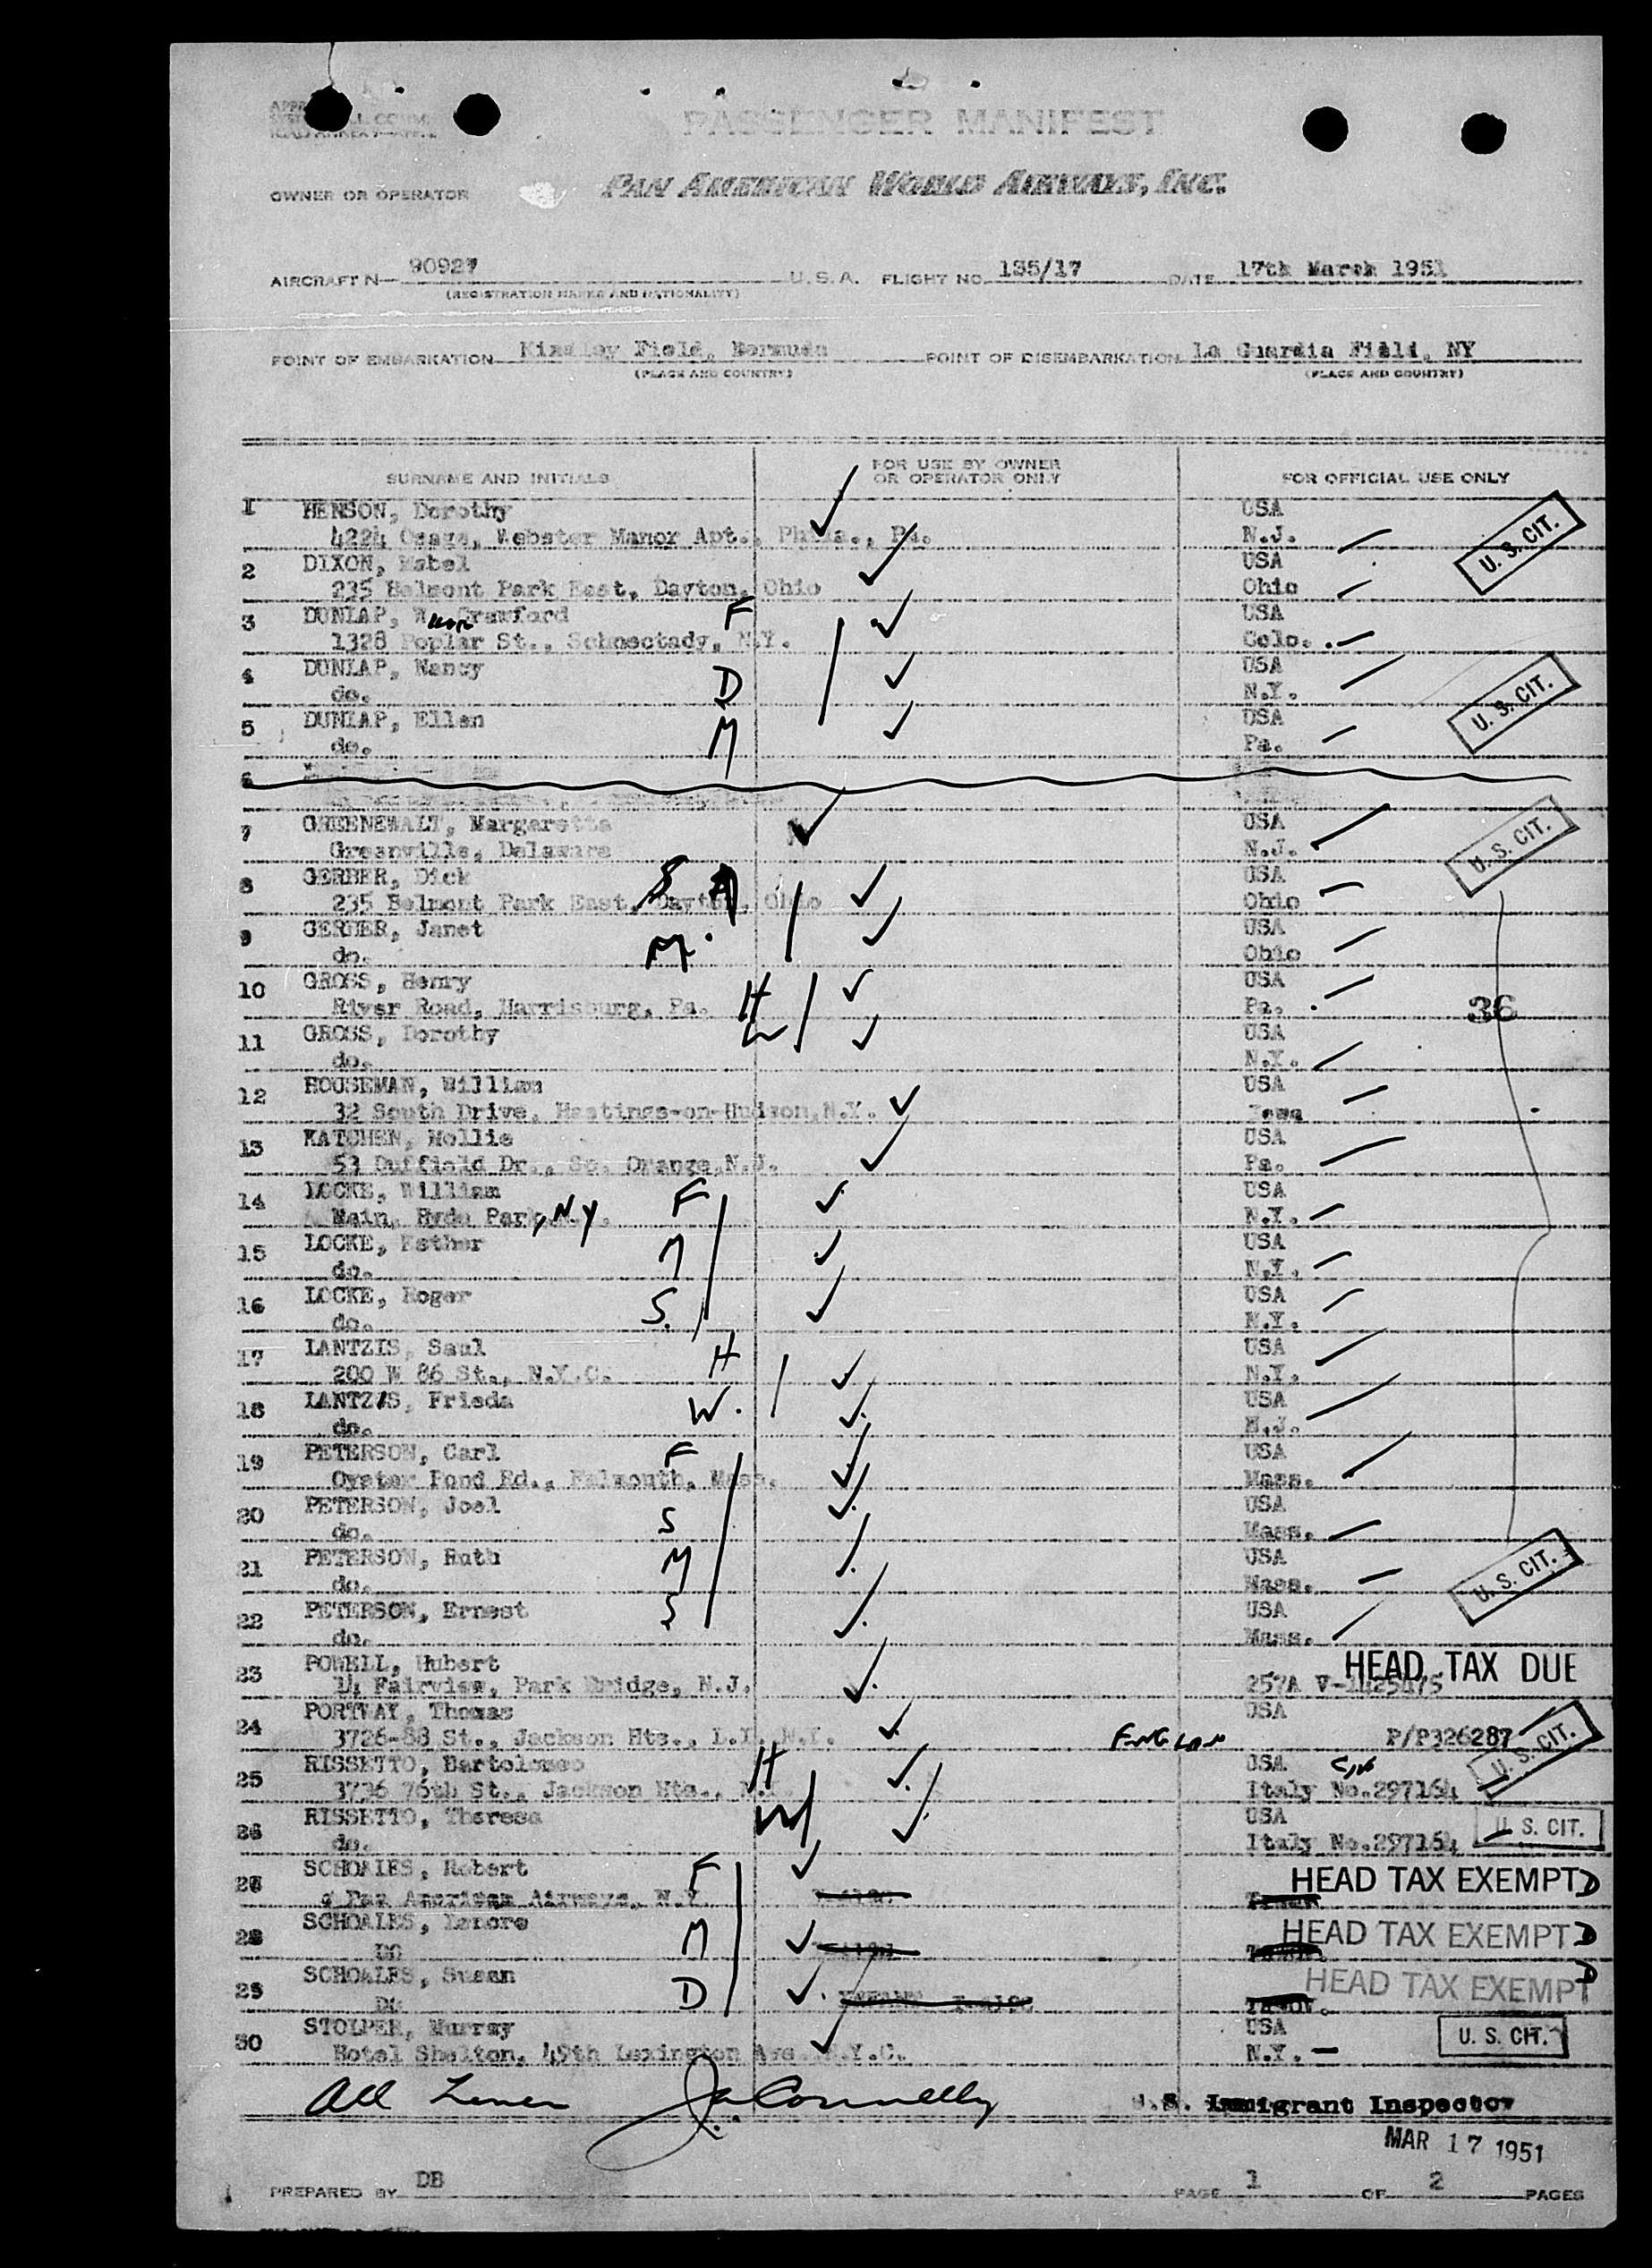 PASSENGER MANIFEST
OWNER OR OPERATOR PAN AMERICAN WORLD AIRWAYS, INC.
AIRCRAFT N— 90927 U.S.A. FLIGHT NO. 135/17 DATE 17th March 1951
(REGISTRATION MARKS AND NATIONALITY)
POINT OF EMBARKATION Kindley Field, Bermuda POINT OF DISEMBARKATION La Guardia Field, NY
(PLACE AND COUNTRY) (PLACE AND COUNTRY)
SURNAME AND INITIALS FOR USE BY OWNER OR OPERATOR ONLY FOR OFFICIAL USE ONLY
1 HENSON, Dorothy USA
4224 Osage, Webster Manor Apt., Phila., Pa. N.J. U. S. CIT.
2 DIXON, Mabel USA
235 Belmont Park East, Dayton, Ohio Ohio
3 DUNLAP, Crawford F USA
1328 Poplar St., Schnectady, N.Y. Colo.
4 DUNLAP, Nancy D USA
do. N.Y. U. S. CIT.
5 DUNLAP, Ellen M USA
do. Pa.
6
7 GREENEWALT, Margaretta USA
Greenville, Delaware N.J. U. S. CIT.
8 GERBER, Dick S USA
235 Belmont Park East, Dayton, Ohio Ohio
9 GERBER, Janet M. USA
do. Ohio
10 GROSS, Henry H USA
River Road, Harrisburg, Pa. Pa. 36
11 GROSS, Dorothy W USA
do. N.Y.
12 HOUSEMAN, William USA
32 South Drive, Hastings-on-Hudson, N.Y. Iowa
13 KATCHEN, Mollie USA
53 Duffield Dr., So. Orange, N.J. Pa.
14 LOCKE, William F USA
Main, Hyde Park, NY N.Y.
15 LOCKE, Esther M USA
do. N.Y.
16 LOCKE, Roger S. USA
do. N.Y.
17 LANTZIS, Saul H USA
200 W 86 St., N.Y.C. N.Y.
18 LANTZIS, Frieda W. USA
do. N.J.
19 PETERSON, Carl F USA
Oyster Pond Rd., Falmouth, Mass. Mass.
20 PETERSON, Joel S USA
do. Mass.
21 PETERSON, Ruth M USA
do. Mass. U. S. CIT.
22 PETERSON, Ernest S USA
do. Mass.
23 POWELL, Hubert HEAD TAX DUE
14 Fairview, Park Bridge, N.J. 257A V-1425475
24 PORTWAY, Thomas USA
3726-88 St., Jackson Hts., L.I. N.Y. P/P326287 U. S. CIT.
25 RISSETTO, Bartolomeo H USA
3736 76th St., Jackson Hts., N.Y. Italy No.297164
26 RISSETTO, Theresa W USA U. S. CIT.
do. Italy No.297164
27 SCHOALES, Robert F HEAD TAX EXEMPT D
Pan American Airways, N.Y.
28 SCHOALES, Lenore M HEAD TAX EXEMPT D
DO
29 SCHOALES, Susan D HEAD TAX EXEMPT D
DO
30 STOLPER, Murray USA U. S. CIT.
Hotel Shelton, 49th Lexington Ave. N.Y.C. N.Y.
J. Connelly U.S. Immigrant Inspector
MAR 17 1951
PREPARED BY DB PAGE 1 OF 2 PAGES